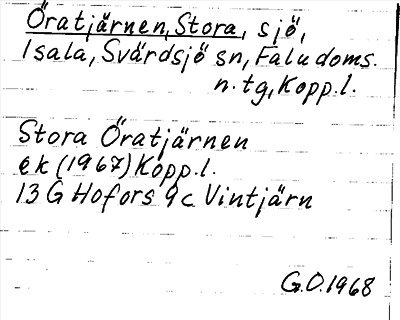 Öratjärnen, Stora, sjö,
Isala, Svärdsjö sn, Falu doms.
n. tg, Kopp. l.
Stora Öratjärnen
ek (1967) Kopp. l.
13 G Hofors 9 c Vintjärn
G.O. 1968